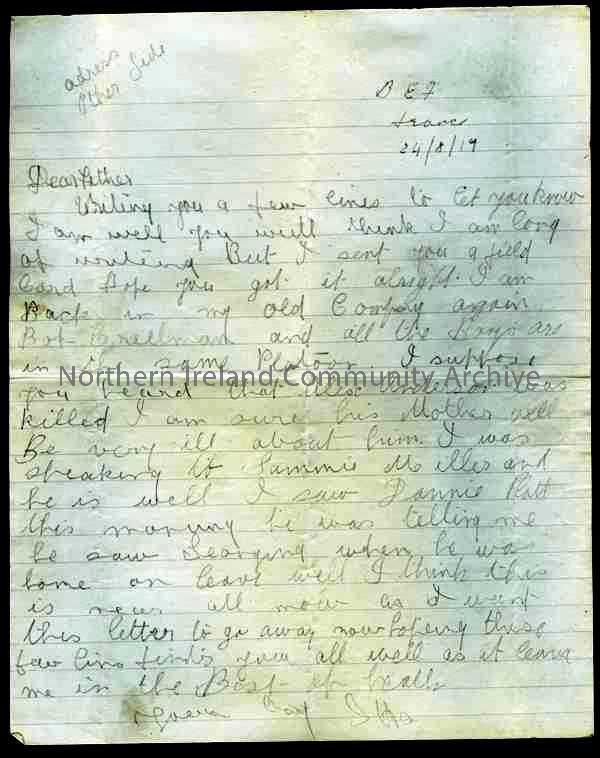 adress
Other Side
B E F
France
24/8/17
Dear Father
Writing you a few lines to let you know
I am well you will think I am long
of writing But I sent you a field
Card Hope you got it alright. I am
Back in my old Company again
Bob and all the Boys are
in the same Platoon I suppose
Northern Ireland Community Archive
you heard that was
killed I am sure his Mother will
Be very ill about him. I was
speaking to Sammie and
he is well I saw Dannie
this morning he was telling me
he saw when he was
home on leave well I think this
is all now as I want
this letter to go away now hoping these
few lins finds you all well as it leaves
me in the Best of health